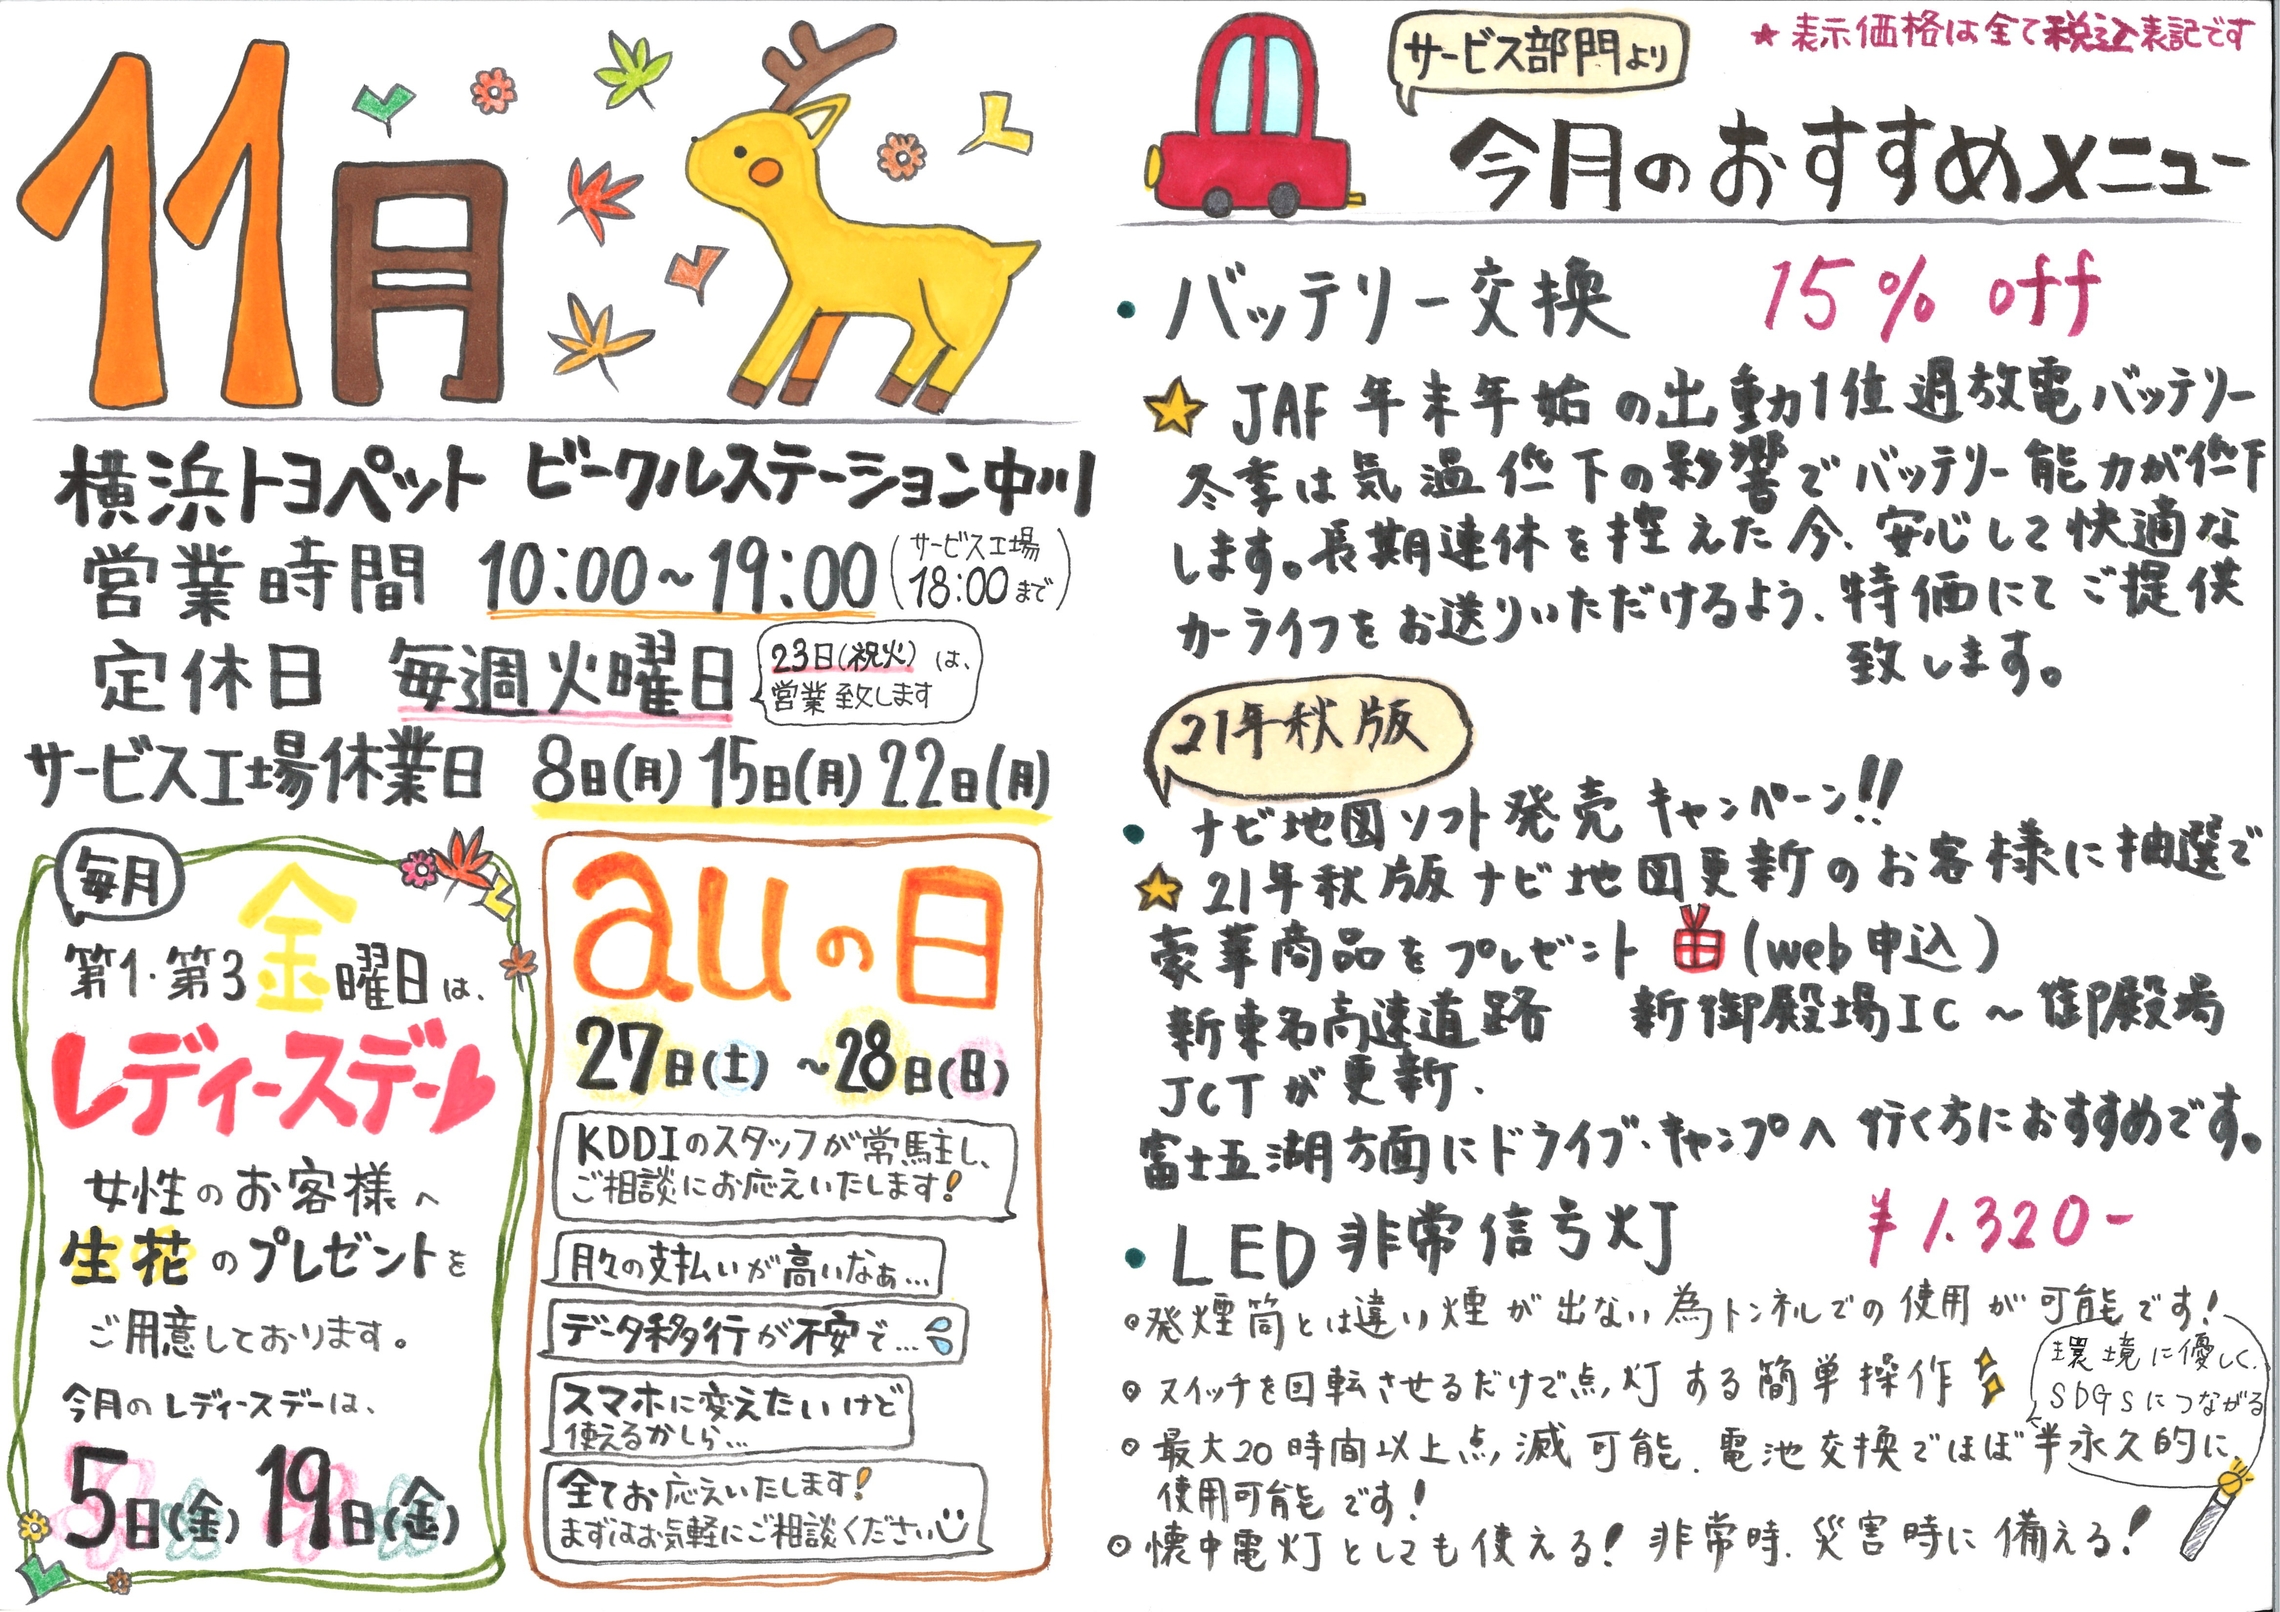 11月
横浜トヨペット ビークルステーション中川
営業時間 10:00~19:00 (サービス工場 18:00まで)
定休日 毎週火曜日
23日(祝火)は、
営業致します
サービス工場休業日 8日(月) 15日(月) 22日(月)
毎月
第1・第3金曜日は、
レディースデー
女性のお客様へ
生花のプレゼントを
ご用意しております。
今月のレディースデーは、
5日(金) 19日(金)
auの日
27日(土) ~28日(日)
KDDIのスタッフが常駐し、
ご相談にお応えいたします!
月々の支払いが高いなぁ…
データ移行が不安で…
スマホに変えたいけど
使えるかしら…
全てお応えいたします!
まずはお気軽にご相談ください
サービス部門より
★表示価格は全て税込表記です
今月のおすすめメニュー
・バッテリー交換 15% off
★JAF年末年始の出動1位過放電バッテリー
冬季は気温低下の影響でバッテリー能力が低下
します。長期連休を控えた今、安心して快適な
カーライフをお送りいただけるよう、特価にてご提供
致します。
21年秋版
・ナビ地図ソフト発売キャンペーン!!
★21年秋版ナビ地図更新のお客様に抽選で
豪華商品をプレゼント (web申込)
新東名高速道路 新御殿場IC~御殿場
JCTが更新.
富士五湖方面にドライブ・キャンプへ行く方におすすめです。
・LED非常信号灯 ¥1.320-
○発煙筒とは違い煙が出ない為トンネルでの使用が可能です!
○スイッチを回転させるだけで点灯する簡単操作
環境に優しく、
SDGSにつながる
○最大20時間以上点滅可能.電池交換でほぼ半永久的に
使用可能です!
○懐中電灯としても使える!非常時.災害時に備える!